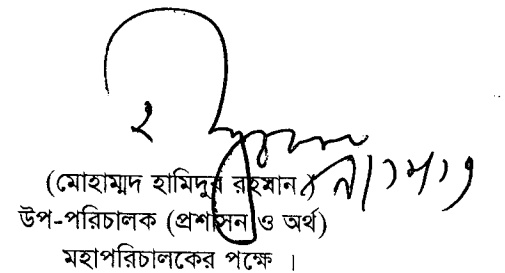 (মোহাম্মদ হামিদুর রহমান)
উপ-পরিচালক (প্রশাসন ও অর্থ)
মহাপরিচালকের পক্ষে ।